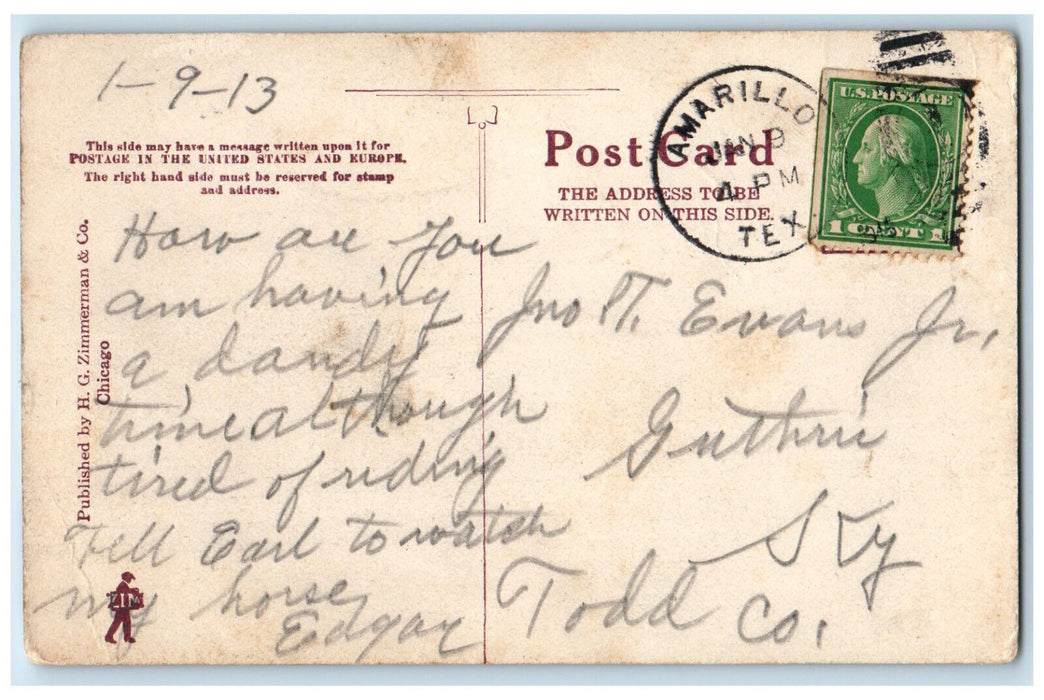 1-9-13
This side may have a message written upon it for
POSTAGE IN THE UNITED STATES AND EUROPE.
The right hand side must be reserved for stamp
and address.
Published by H. G. Zimmerman & Co.
Chicago
How are you
am having
a dandy
time although
tired of riding
Tell Earl to watch
my horse
Edgar
ZIM
Post Card
THE ADDRESS TO BE
WRITTEN ON THIS SIDE.
AMARILLO
JAN 9
4 PM
TEX
U.S. POSTAGE
1 CENT 1
Jno T. Evans Jr.
Guthrie
Ky
Todd Co.